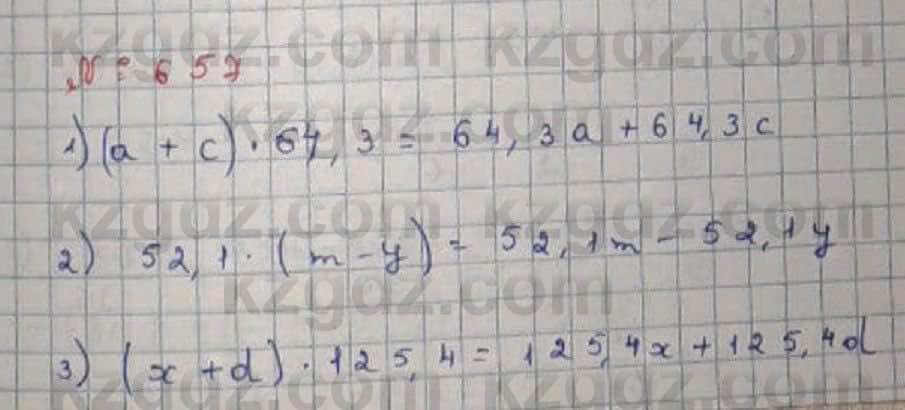 kzgdz.com kzgdz.com
№ 657
kzgdz.com
1) (a + c) · 64,3 = 64,3a + 64,3c
kzgdz.com kzgdz.com
2) 52,1 · (m - y) = 52,1m - 52,1y
kzgdz.com
3) (x + d) · 125,4 = 125,4x + 125,4d
kzgdz.com kzgdz.com